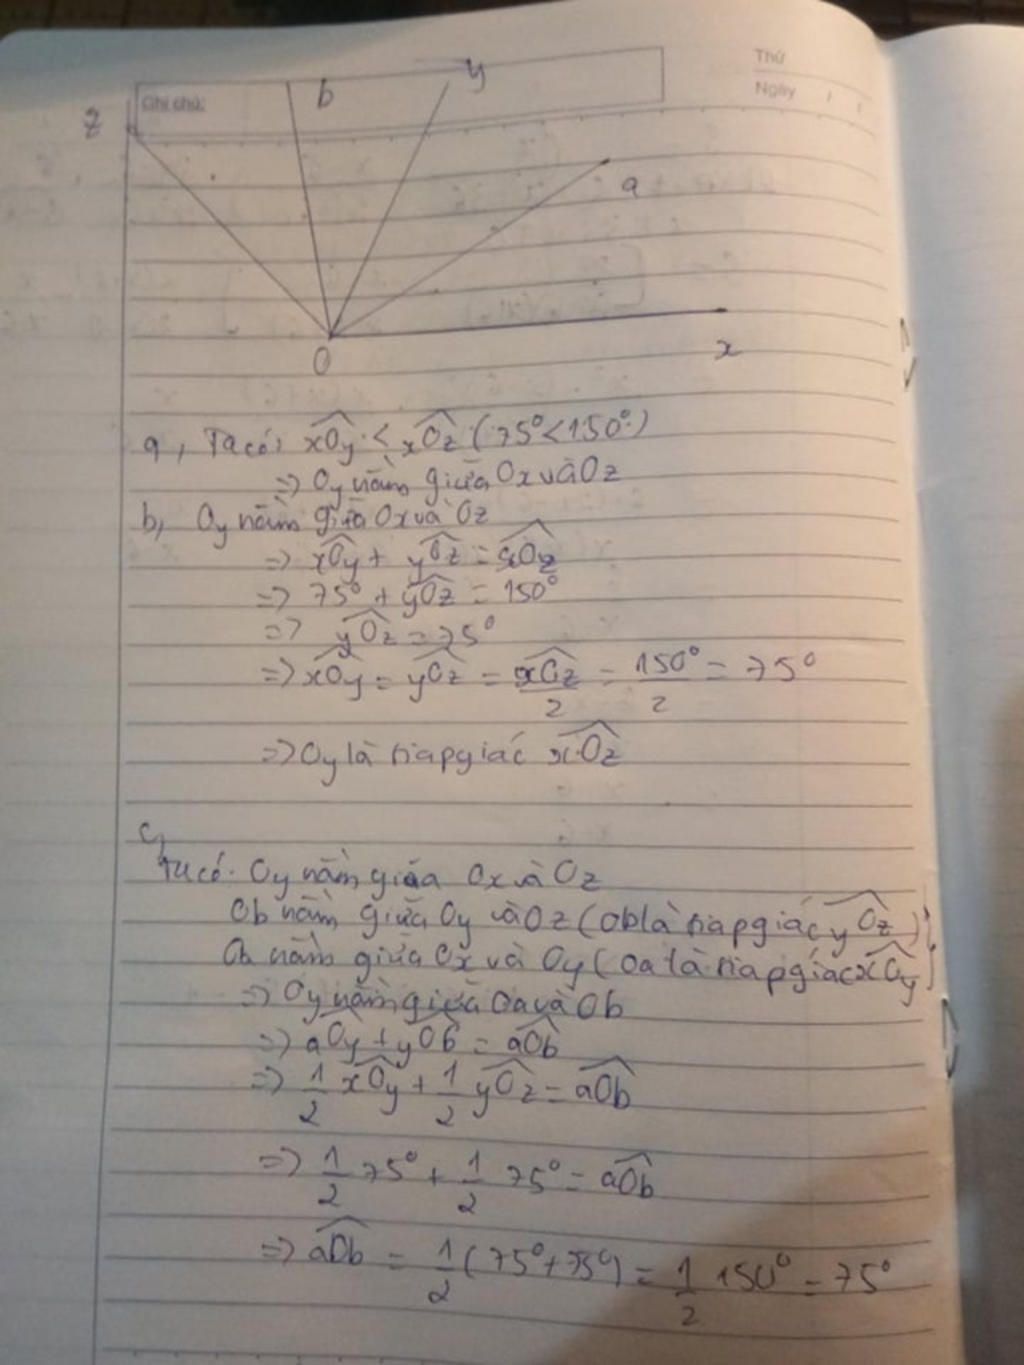 Thứ
Ngày / /
Ghi chú:
z b y
a
O x
a, Ta có: xOy < xOz (75° < 150°)
=> Oy nằm giữa Ox và Oz
b, Oy nằm giữa Ox và Oz
=> xOy + yOz = xOz
=> 75° + yOz = 150°
=> yOz = 75°
=> xOy = yOz = xOz/2 = 150°/2 = 75°
=> Oy là tia p giác xOz
c,
Ta có. Oy nằm giữa Ox và Oz
Ob nằm giữa Oy và Oz (Ob là tia p giác yOz)
Oa nằm giữa Ox và Oy (Oa là tia p giác xOy)
=> Oy nằm giữa Oa và Ob
=> aOy + yOb = aOb
=> 1/2 xOy + 1/2 yOz = aOb
=> 1/2 75° + 1/2 75° = aOb
=> aOb = 1/2 (75° + 75°) = 1/2 150° = 75°